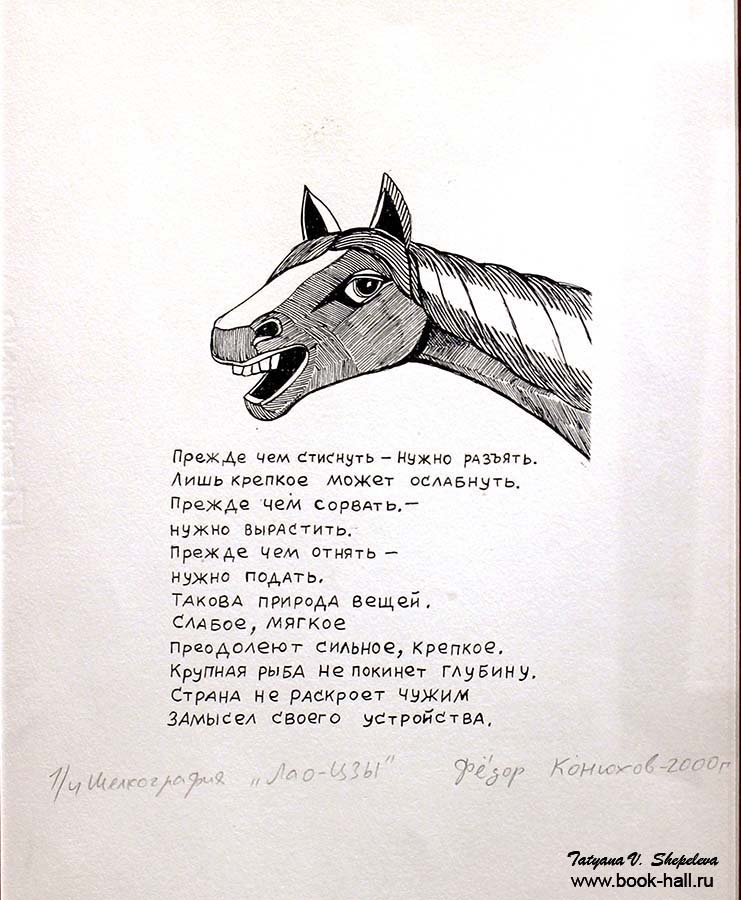 Прежде чем стиснуть – нужно разъять.
Лишь крепкое может ослабнуть.
Прежде чем сорвать.–
нужно вырастить.
Прежде чем отнять –
нужно подать.
Такова природа вещей.
Слабое, мягкое
Преодолеют сильное, крепкое.
Крупная рыба не покинет глубину.
Страна не раскроет чужим
замысел своего устройства.
Шелкография „Лао-Цзы" Фёдор Конюхов-2000г
Tatyana V. Shepeleva
www.book-hall.ru